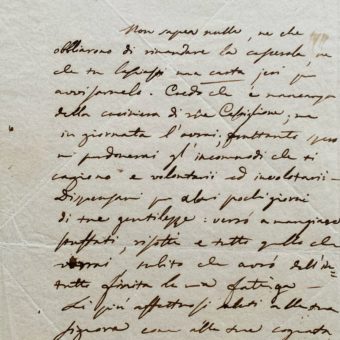 Non sapea nulla, ne che
obbliarono di rimandare la casserola, ne
che tu lasciassi una carta per
avvisarmelo. Credo che è mancanza
della cuciniera di
in giornata l'avrai, frattanto spero
mi perdonerai gl'incommodi che ti
cagiono e volontarii ed involotarii —
Dispensami per altri pochi giorni
di tue gentilezze: verrò a mangiare
stuffati, risotti e tutto quello che
vorrai subito che avrò dell'in
tutto finita la mia fatiga —
Li più affettuosi saluti alla tua
signora com alla tua cognata